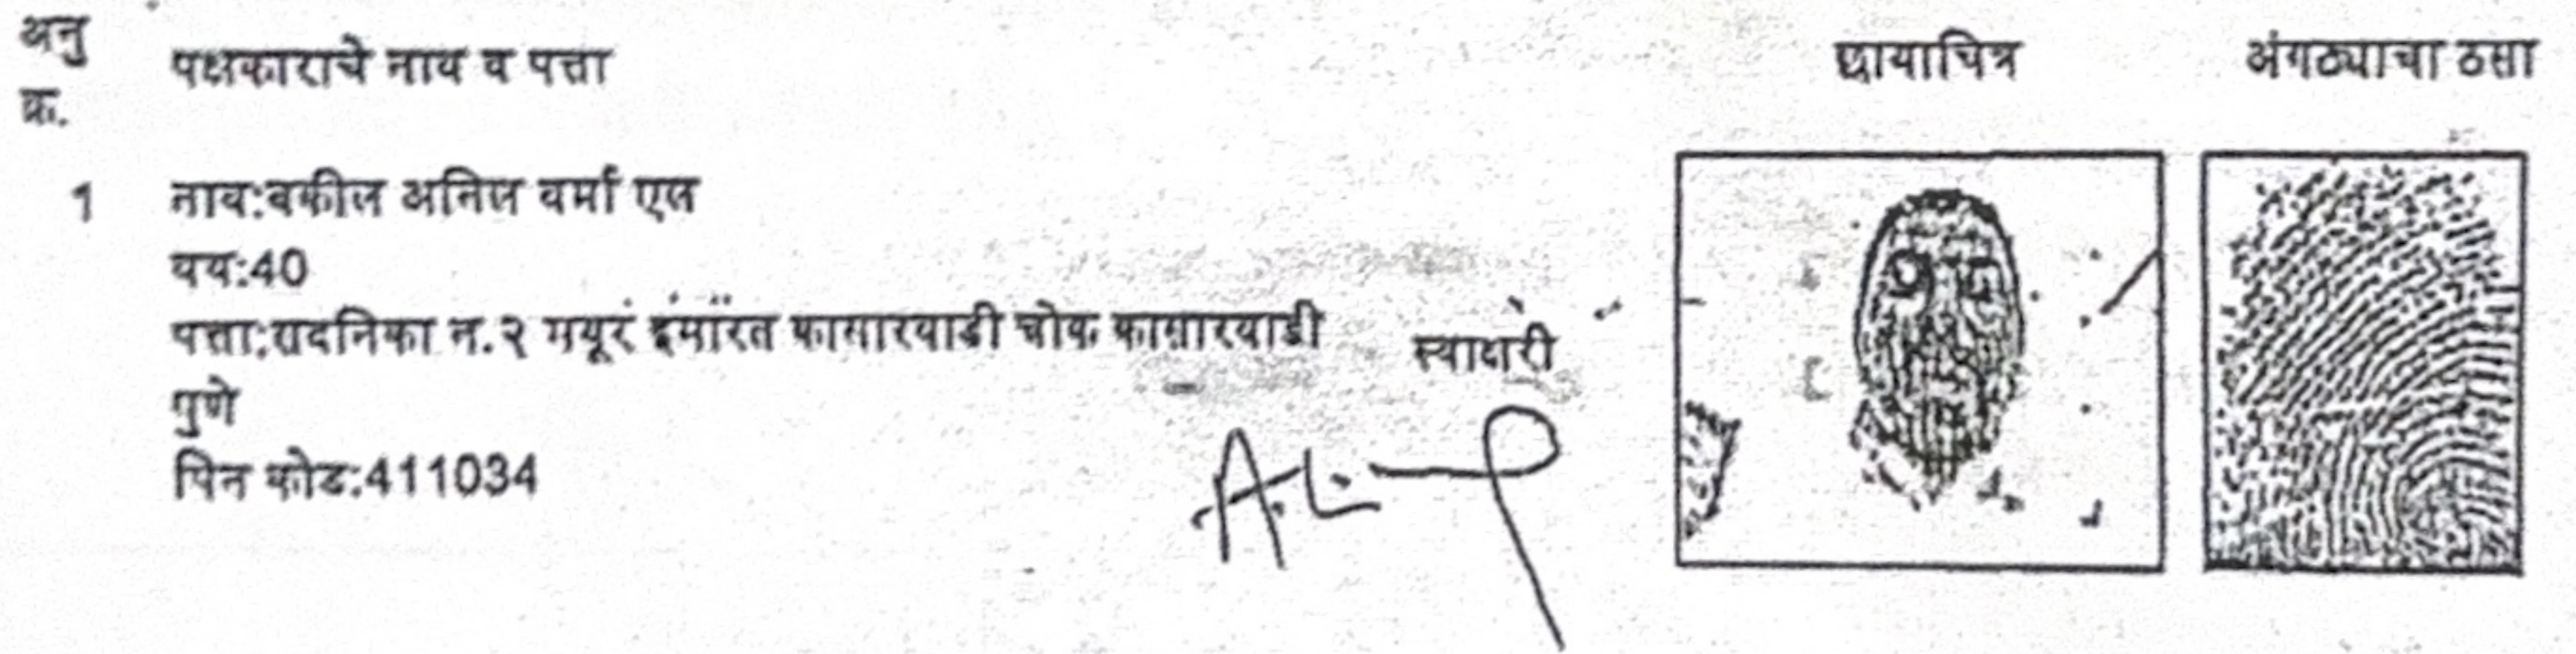 अनु क्र. पक्षकाराचे नाव व पत्ता छायाचित्र अंगठ्याचा ठसा
1 नाव:वकील अनिल वर्मा एल
वय:40
पत्ता:सदनिका न.२ मयूर इमारत कासारवाडी चौक कासारवाडी
स्वाक्षरी
पुणे
पिन कोड:411034